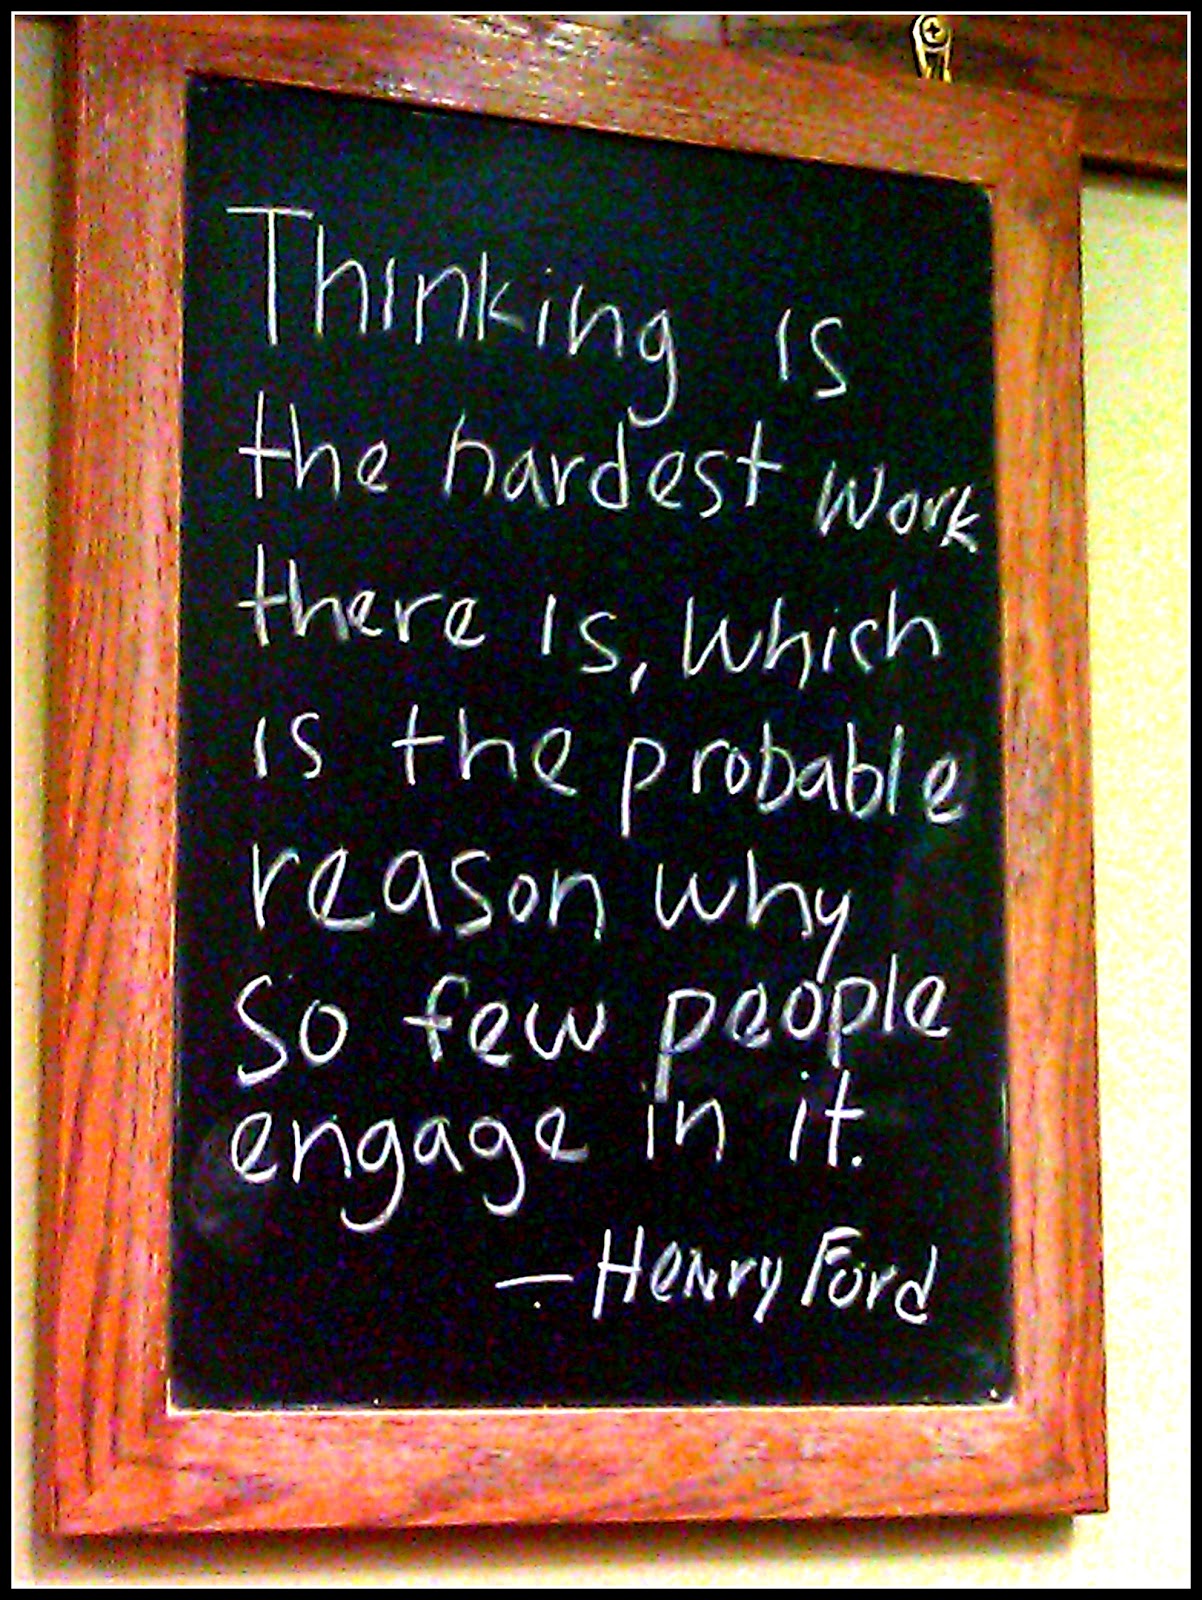 Thinking is
the hardest work
there is, which
is the probable
reason why
so few people
engage in it.
— Henry Ford